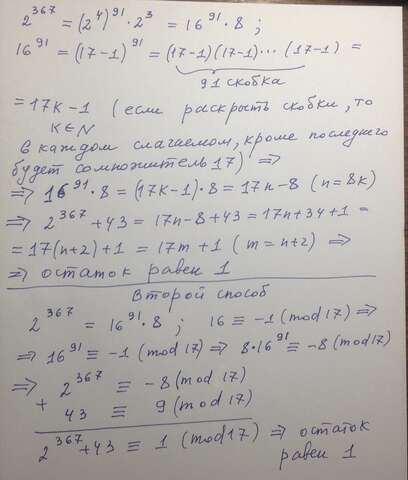 2^367 = (2^4)^91 · 2^3 = 16^91 · 8 ;
16^91 = (17-1)^91 = (17-1)(17-1)...(17-1) =
91 скобка
= 17k-1 (если раскрыть скобки, то
k∈N
в каждом слагаемом, кроме последнего
будет сомножитель 17) ⇒
⇒ 16^91 · 8 = (17k-1)·8 = 17n-8 (n=8k)
⇒ 2^367 + 43 = 17n-8+43 = 17n+34+1 =
= 17(n+2)+1 = 17m+1 (m=n+2) ⇒
⇒ остаток равен 1
Второй способ
2^367 = 16^91 · 8 ; 16 ≡ -1 (mod 17) ⇒
⇒ 16^91 ≡ -1 (mod 17) ⇒ 8·16^91 ≡ -8 (mod 17)
⇒ 2^367 ≡ -8 (mod 17)
+ 43 ≡ 9 (mod 17)
2^367 + 43 ≡ 1 (mod 17) ⇒ остаток
равен 1